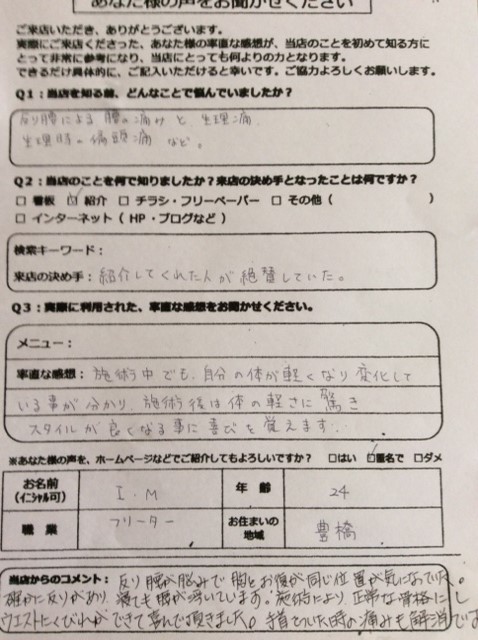 あなた様の声をお聞かせください
ご来店いただき、ありがとうございます。
実際にご来店くださった、あなた様の率直な感想が、当店のことを初めて知る方に
とって非常に参考になり、当店にとっても何よりの力となります。
できるだけ具体的に、ご記入いただけると幸いです。ご協力よろしくお願いします。
Q1：当店を知る前、どんなことで悩んでいましたか？
反り腰による腰の痛みと生理痛、
生理時の偏頭痛など。
Q2：当店のことを何で知りましたか？来店の決め手となったことは何ですか？
□ 看板 ☑ 紹介 □ チラシ・フリーペーパー □ その他（ ）
□ インターネット（HP・ブログなど）
検索キーワード：
来店の決め手：紹介してくれた人が絶賛していた。
Q3：実際に利用された、率直な感想をお聞かせください。
メニュー：
率直な感想：施術中でも、自分の体が軽くなり変化して
いる事が分かり、施術後は体の軽さに驚き
スタイルが良くなる事に喜びを覚えます...
※あなた様の声を、ホームページなどでご紹介してもよろしいですか？ □はい ☑匿名で □ダメ
お名前（イニシャル可） I.M 年齢 24
職業 フリーター お住まいの地域 豊橋
当店からのコメント：反り腰が悩みで胸とお腹が同じ位置が気になっていた。
確かに反りがあり、寝ても腰が浮いています。施術により、正常な骨格にし
ウエストにくびれができて喜んで頂きました。手首をついた時の痛みも解消です